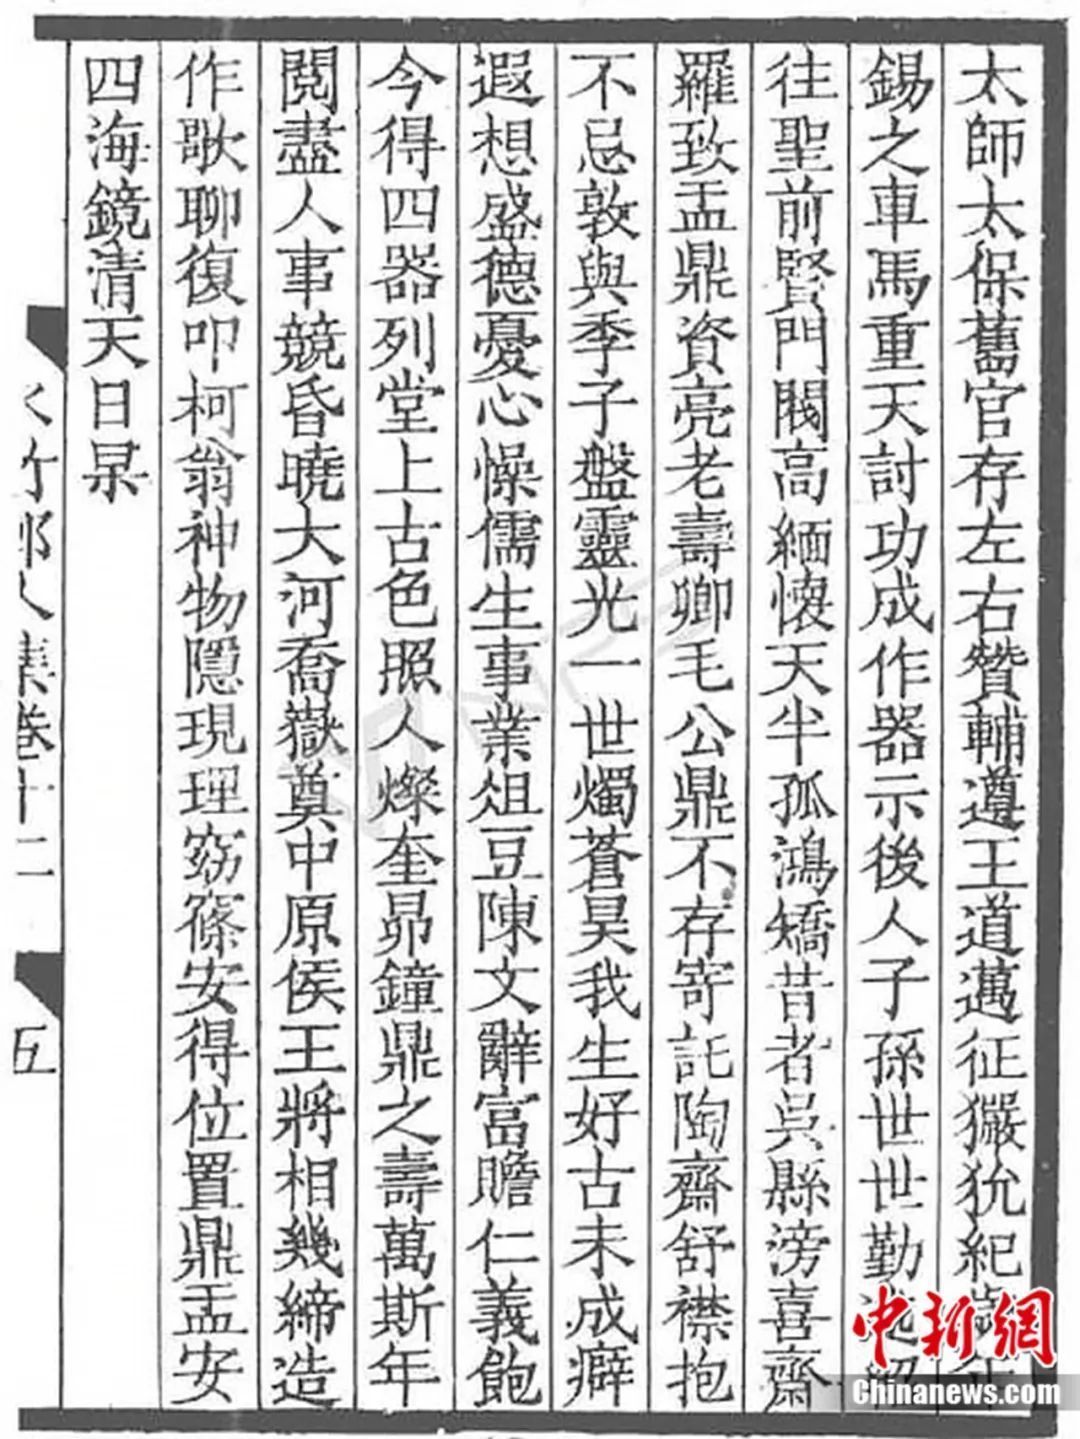 太師太保舊官存左右贊輔遵王道邁征玁狁紀
錫之車馬重天討功成作器示後人子孫世世勤
往聖前賢門閥高緬懷天半孤鴻矯昔者吳縣滂喜齋
羅致盂鼎資亮老壽卿毛公鼎不存寄託陶齋舒襟抱
不忌敦與季子盤靈光一世燭蒼昊我生好古未成癖
遐想盛德憂心懆儒生事業俎豆陳文辭富贍仁義飽
今得四器列堂上古色照人燦奎昴鐘鼎之壽萬斯年
閱盡人事競昏曉大河喬嶽奠中原侯王將相幾締造
作歌聊復叩柯翁神物隱現理窈窱安得位置鼎盂安
四海鏡清天日杲
水竹邨人集卷十二
五
中新網
Chinanews.com